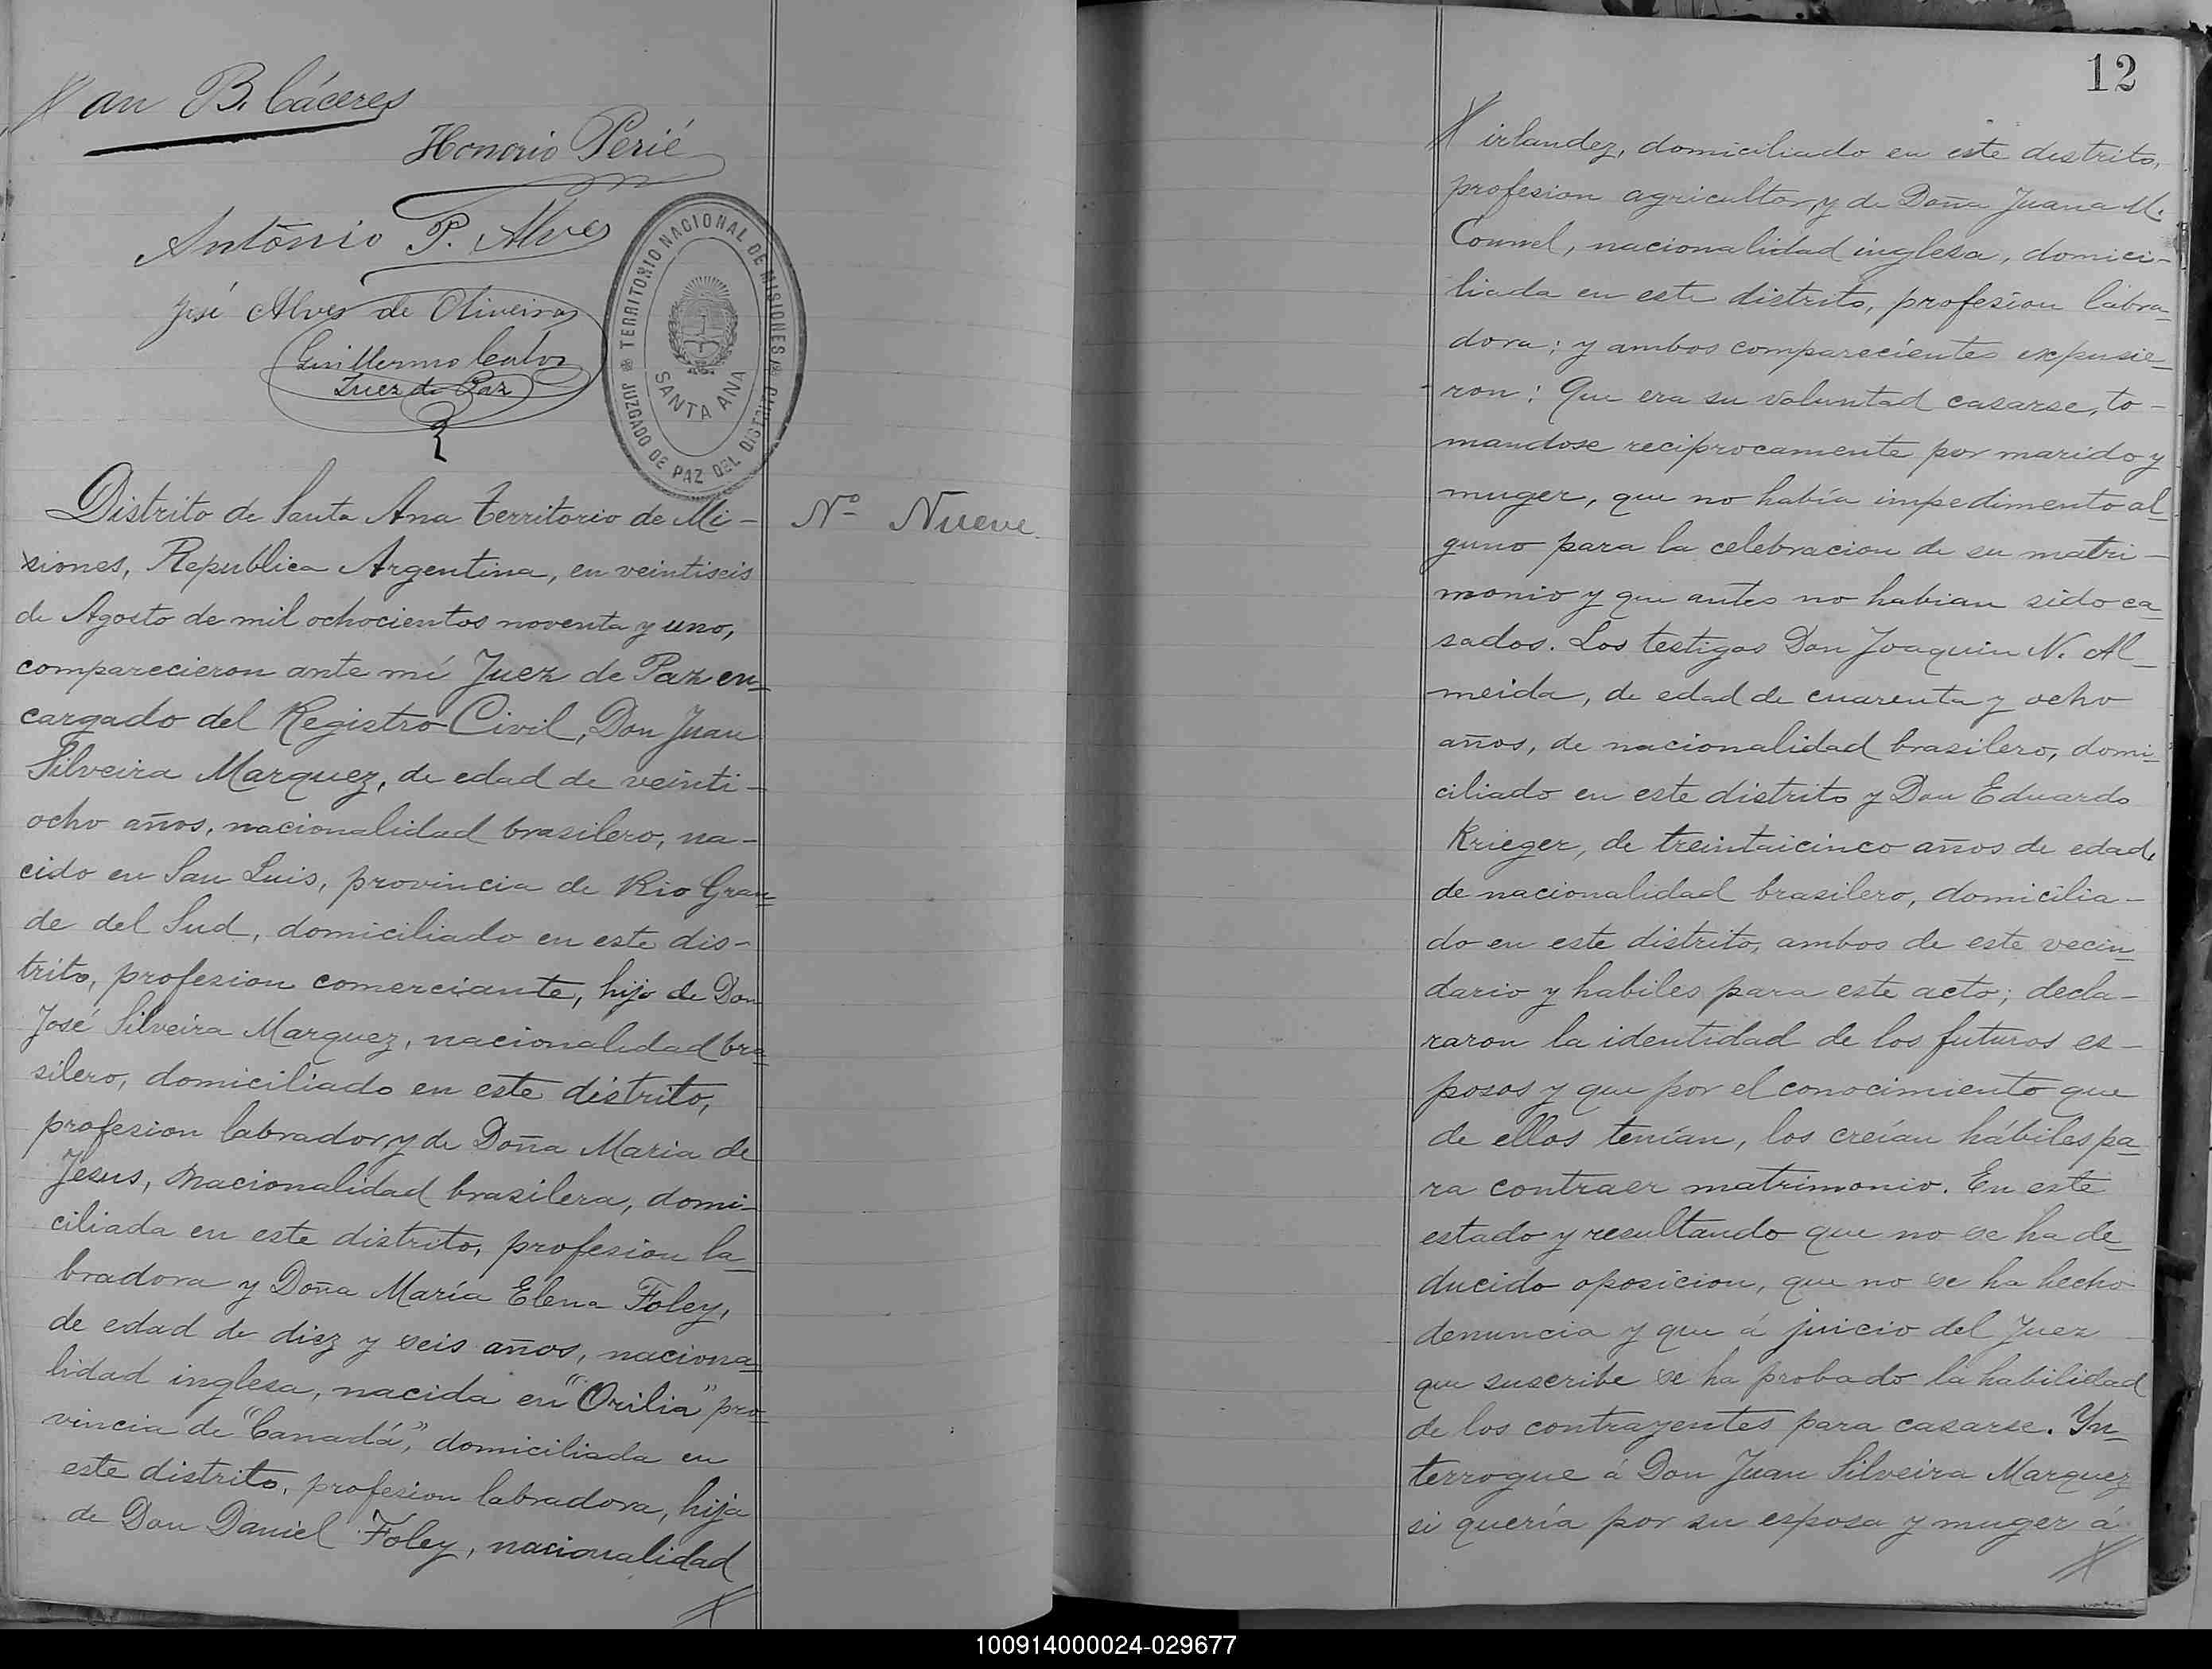 an B. Cáceres
Honorio Perié
Antônio P. Alves
José Alves de Oliveira
Guillermo
Juez de Paz
TERRITORIO NACIONAL DE MISIONES
JUZGADO DE PAZ DEL DISTRITO
SANTA ANA
Nº Nueve.
Distrito de Santa Ana Territorio de Mi-
siones, Republica Argentina, en veintiseis
de Agosto de mil ochocientos noventa y uno,
comparecieron ante mí Juez de Paz en-
cargado del Registro Civil, Don Juan
Silveira Marquez, de edad de veinti-
ocho años, nacionalidad brasilero, na-
cido en San Luis, provincia de Rio Gran-
de del Sud, domiciliado en este dis-
trito, profesion comerciante, hijo de Don
José Silveira Marquez, nacionalidad bra-
silero, domiciliado en este distrito,
profesion labrador, y de Doña Maria de
Jesus, nacionalidad brasilera, domi-
ciliada en este distrito, profesion la-
bradora y Doña María Elena Foley,
de edad de diez y seis años, naciona-
lidad inglesa, nacida en "Orilia" pro-
vincia de "Canadá", domiciliada en
este distrito, profesion labradora, hija
de Don Daniel Foley, nacionalidad
12
irlandez, domiciliado en este distrito,
profesion agricultor, y de Doña Juana M.
Connel, nacionalidad inglesa, domici-
liada en este distrito, profesion labra-
dora; y ambos comparecientes expusie-
ron: Que era su voluntad casarse, to-
mandose reciprocamente por marido y
muger, que no había impedimento al-
guno para la celebracion de su matri-
monio y que antes no habian sido ca-
sados. Los testigos Don Joaquin N. Al-
meida, de edad de cuarenta y ocho
años, de nacionalidad brasilero, domi-
ciliado en este distrito y Don Eduardo
Krieger, de treintaicinco años de edad,
de nacionalidad brasilero, domicilia-
do en este distrito, ambos de este vecin-
dario y habiles para este acto; decla-
raron la identidad de los futuros es-
posos y que por el conocimiento que
de ellos tenían, los creían hábiles pa-
ra contraer matrimonio. En este
estado y resultando que no se ha de-
ducido oposicion, que no se ha hecho
denuncia y que á juicio del Juez
que suscribe se ha probado la habilidad
de los contrayentes para casarse. Yn-
terrogue á Don Juan Silveira Marquez
si quería por su esposa y muger á
100914000024-029677